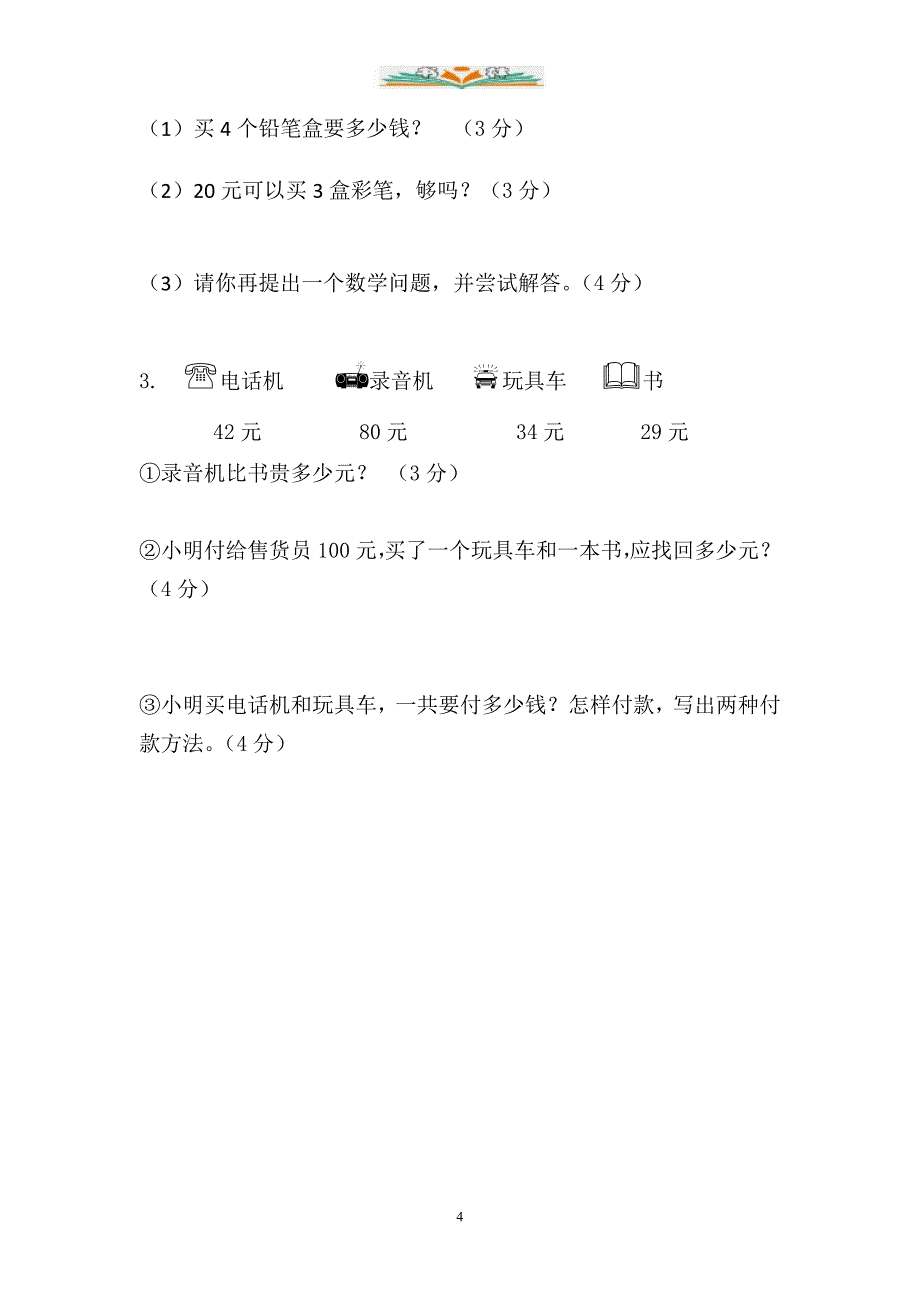 书 香
（1）买 4 个铅笔盒要多少钱？ （3 分）
（2）20 元可以买 3 盒彩笔，够吗？（3 分）
（3）请你再提出一个数学问题，并尝试解答。（4 分）
3. 电话机 录音机 玩具车 书
42 元 80 元 34 元 29 元
①录音机比书贵多少元？ （3 分）
②小明付给售货员 100 元，买了一个玩具车和一本书，应找回多少元？
（4 分）
③小明买电话机和玩具车，一共要付多少钱？怎样付款，写出两种付
款方法。（4 分）
4